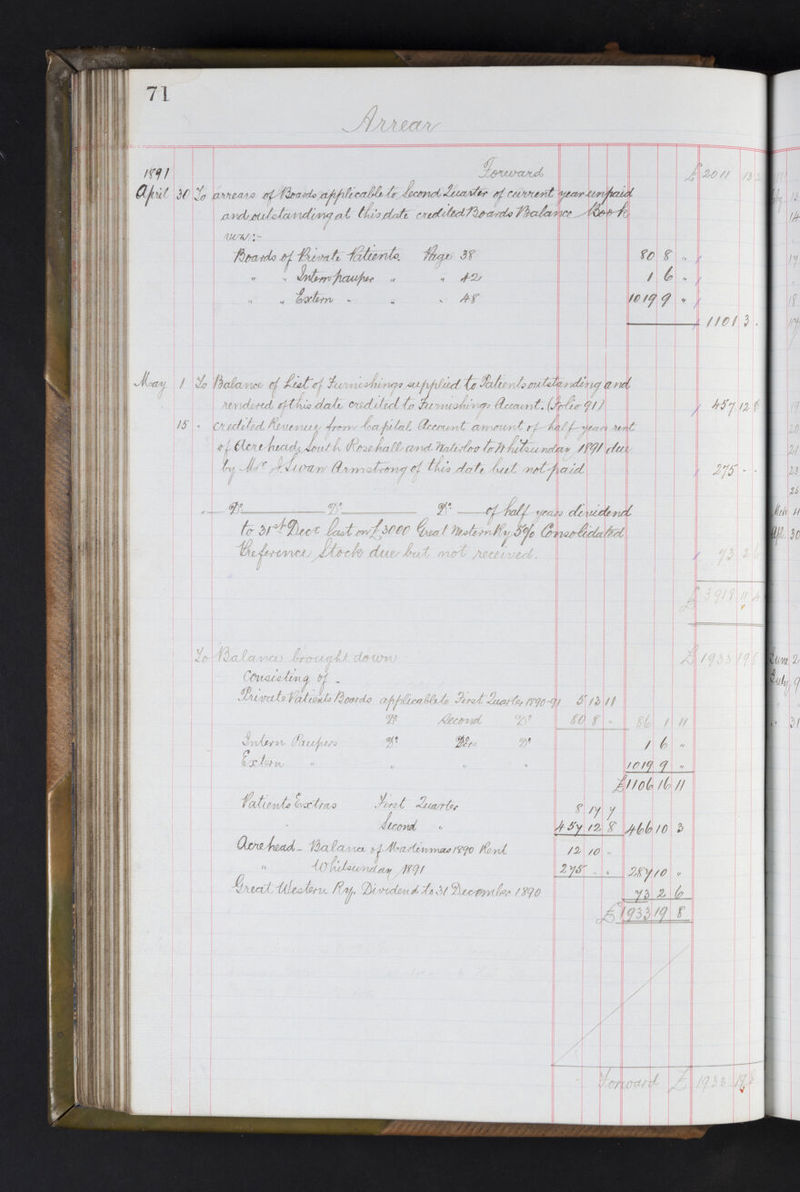 71
Arrear
1891 Forward £ 2011 13
April 30 To arrears of Boards applicable to Second Quarter of current year unpaid
and outstanding at this date credited Boards Balance Book
viz:-
Boards of Private Patients Page 38 80 8 "
" " Intern pauper " " 42 1 6 "
" " Extern " " " 48 1019 9 "
1101 3 .
May 1 To Balance of List of Furnishings supplied to Patients outstanding and
rendered of this date credited to Furnishings Account. (Folio 91) 457 12 8
15 " credited Revenue from Capital Account amount of half-year rent
of Acrehead, South Rosehall and Waterloo to Whitsunday 1891 due
by Mr J. Swan Armstrong of this date but not paid 275 - -
" Do Do Do of half years dividend
to 31st Decr last on £3000 Great Western Ry 5% Consolidated
Preference Stock due but not received. 73 2 6
£ 3918 11
To Balance brought down £ 1933 19 8
Consisting of -
Private Patients Boards applicable to First Quarter 1890-91 5 13 11
Do Second Do 80 8 - 86 1 11
Intern Paupers Do Do Do 1 6 "
Extern " " " " 1019 9 "
£1106 16 11
Patients Extras First Quarter 8 17 7
" Second " 457 12 8 466 10 3
Acrehead - Balance of Martinmas 1890 Rent 12 10 -
" Whitsunday 1891 275 - - 287 10 "
Great Western Ry. Dividend to 31 December 1890 73 2 6
£ 1933 19 8
Forward £ 1933 19 8